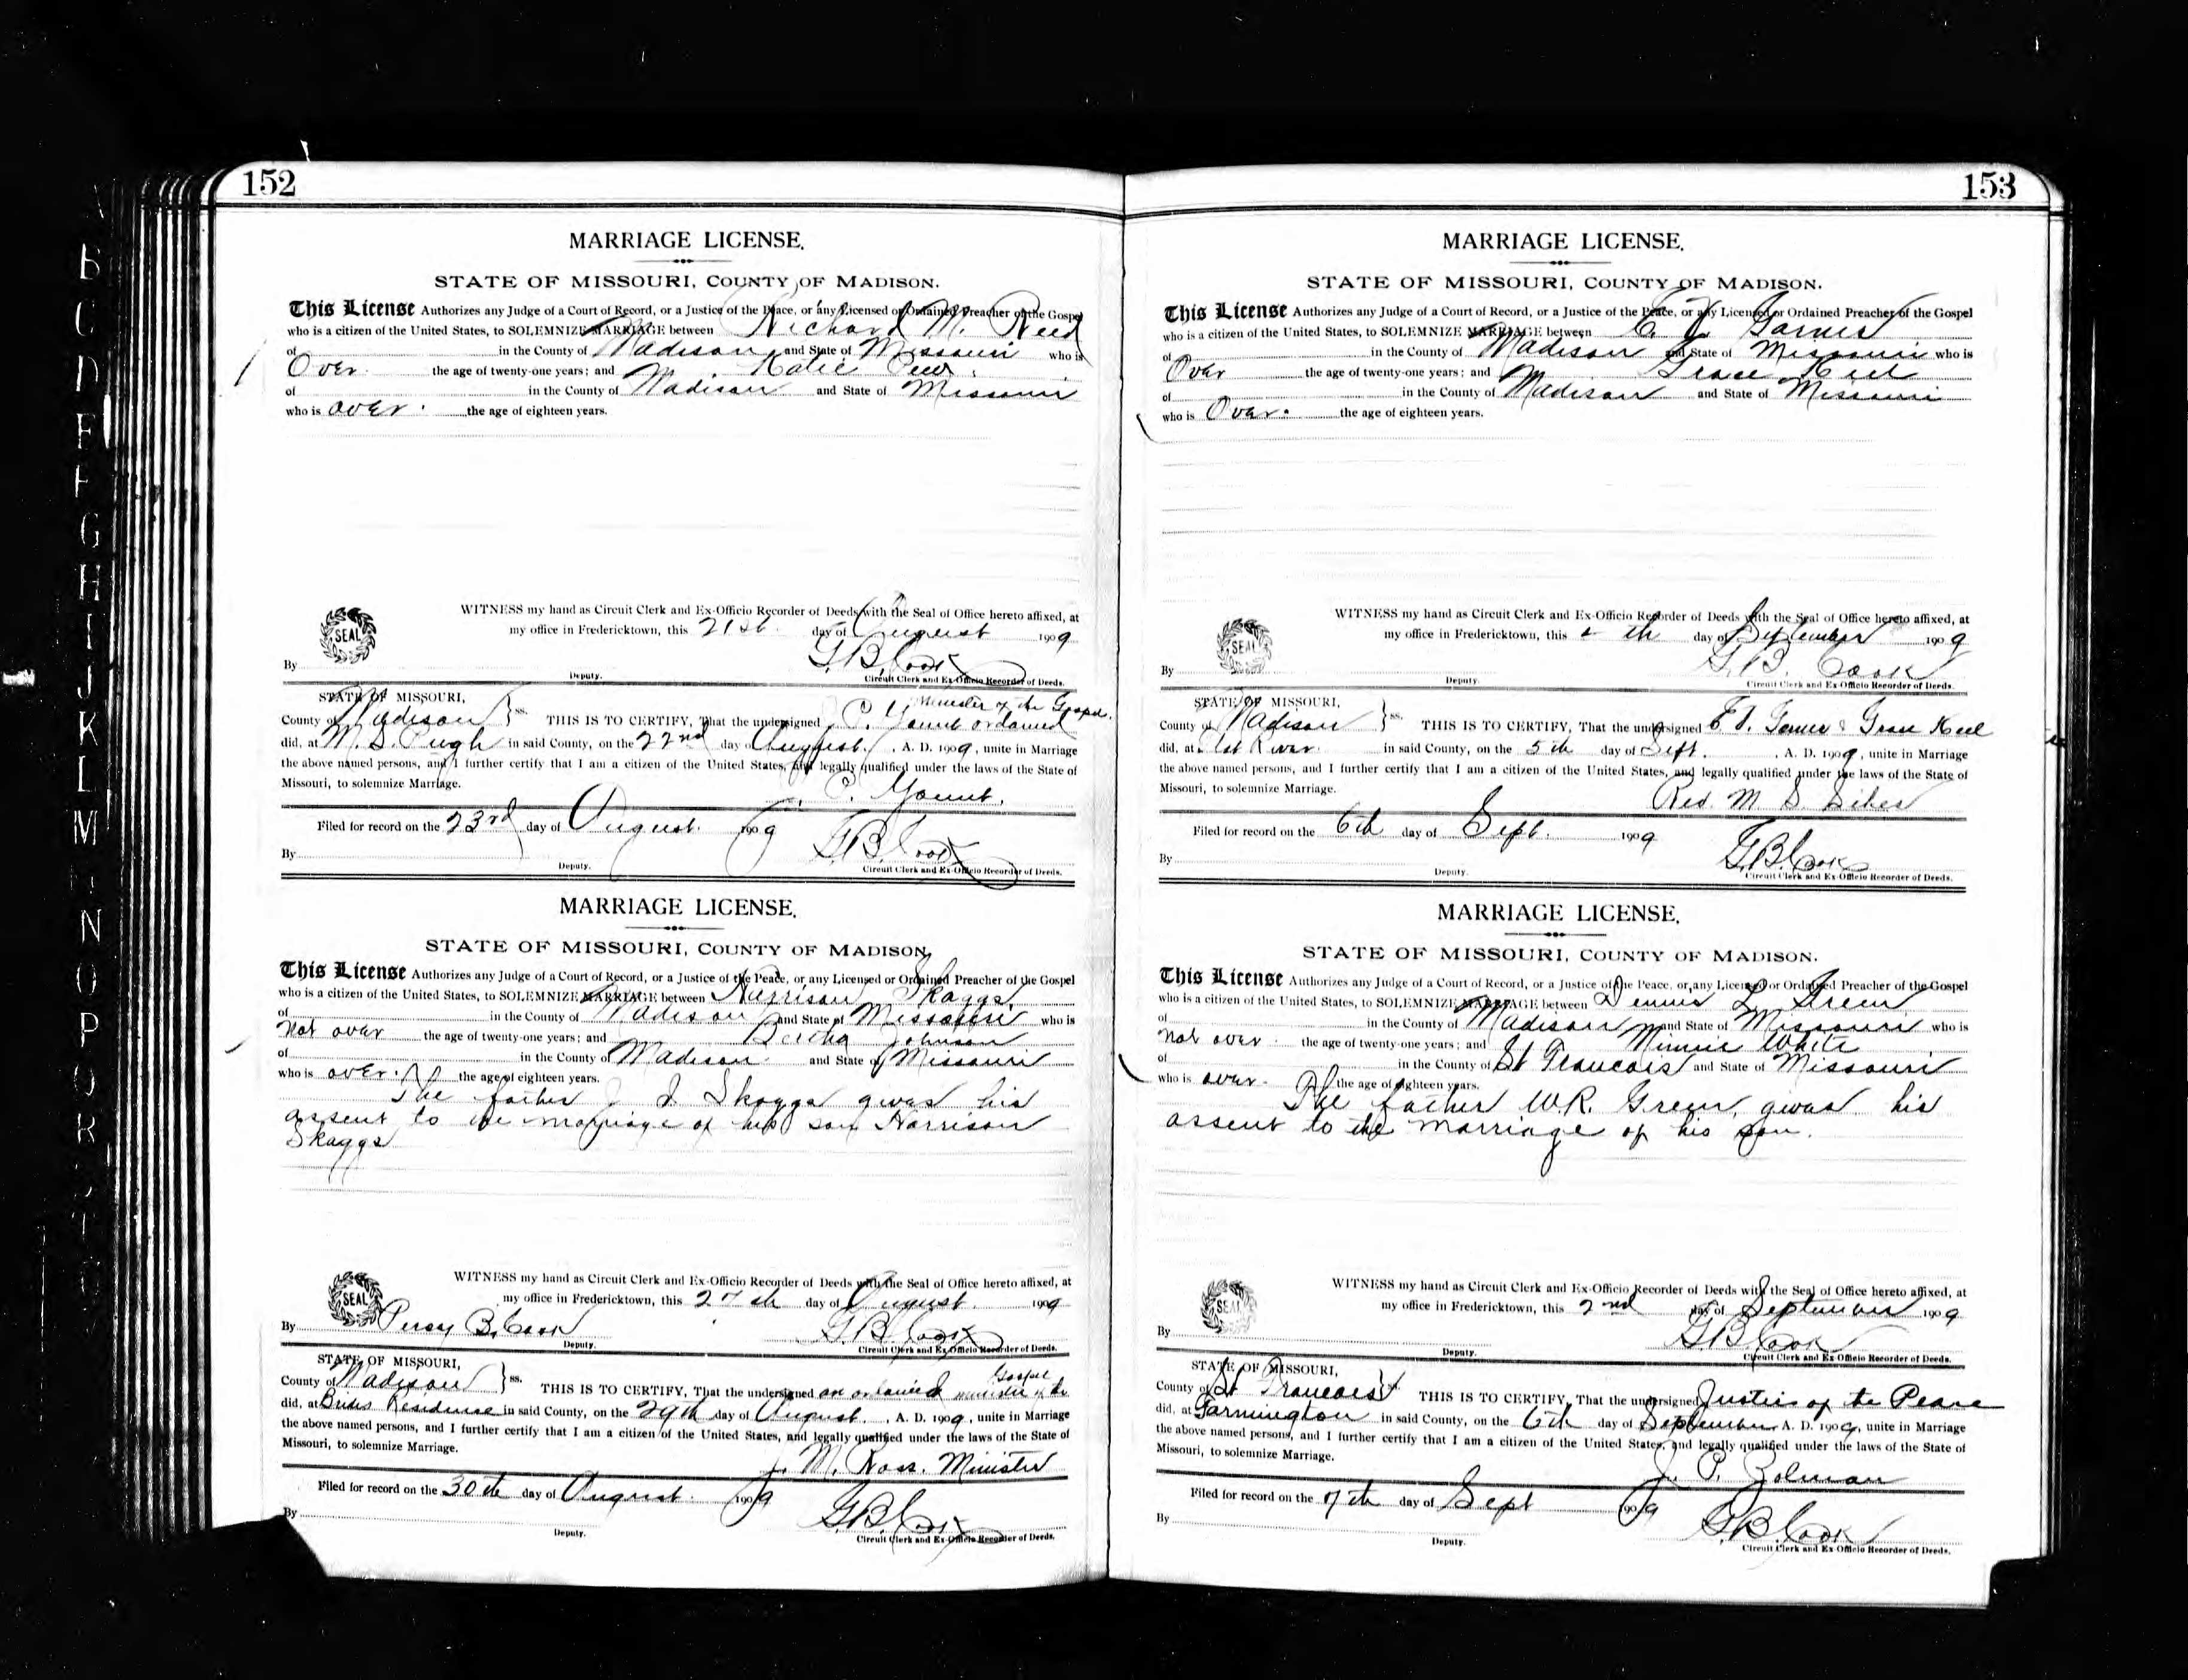 152
MARRIAGE LICENSE.
STATE OF MISSOURI, COUNTY OF MADISON.
This License Authorizes any Judge of a Court of Record, or a Justice of the Peace, or any Licensed or Ordained Preacher of the Gospel
who is a citizen of the United States, to SOLEMNIZE MARRIAGE between Richard M. Reed
of in the County of Madison and State of Missouri who is
Over the age of twenty-one years; and Katie
of in the County of Madison and State of Missouri
who is over. the age of eighteen years.
WITNESS my hand as Circuit Clerk and Ex-Officio Recorder of Deeds with the Seal of Office hereto affixed, at
SEAL
my office in Fredericktown, this 21st day of August 1909
By G.B. Cook
Deputy. Circuit Clerk and Ex-Officio Recorder of Deeds.
STATE OF MISSOURI, Minister of the Gospel
County of Madison ss. THIS IS TO CERTIFY, That the undersigned C. Yount ordained
did, at M. S. Pugh in said County, on the 22nd day August. , A. D. 1909, unite in Marriage
the above named persons, and I further certify that I am a citizen of the United States, and legally qualified under the laws of the State of
Missouri, to solemnize Marriage. C. Yount.
Filed for record on the 23rd day of August. 1909 G.B. Cook
By
Deputy. Circuit Clerk and Ex-Officio Recorder of Deeds.
MARRIAGE LICENSE.
STATE OF MISSOURI, COUNTY OF MADISON.
This License Authorizes any Judge of a Court of Record, or a Justice of the Peace, or any Licensed or Ordained Preacher of the Gospel
who is a citizen of the United States, to SOLEMNIZE MARRIAGE between Harrison Skaggs
of in the County of Madison and State of Missouri who is
Not over the age of twenty-one years; and Bertha Johnson
of in the County of Madison and State of Missouri
who is over. the age of eighteen years.
The father J Skaggs gives his
assent to the marriage of his son Harrison
Skaggs
WITNESS my hand as Circuit Clerk and Ex-Officio Recorder of Deeds with the Seal of Office hereto affixed, at
SEAL
my office in Fredericktown, this 27th day of August. 1909
By Percy B. Cook G.B. Cook
Deputy. Circuit Clerk and Ex-Officio Recorder of Deeds.
STATE OF MISSOURI, Gospel
County of Madison ss. THIS IS TO CERTIFY, That the undersigned an ordained minister of the
did, at Brides Residence in said County, on the 29th day of August. , A. D. 1909, unite in Marriage
the above named persons, and I further certify that I am a citizen of the United States, and legally qualified under the laws of the State of
Missouri, to solemnize Marriage. J. M. Ross. Minister
Filed for record on the 30th day of August. 1909 G.B. Cook
By
Deputy. Circuit Clerk and Ex-Officio Recorder of Deeds.
153
MARRIAGE LICENSE.
STATE OF MISSOURI, COUNTY OF MADISON.
This License Authorizes any Judge of a Court of Record, or a Justice of the Peace, or any Licensed or Ordained Preacher of the Gospel
who is a citizen of the United States, to SOLEMNIZE MARRIAGE between
of in the County of Madison and State of Missouri who is
Over the age of twenty-one years; and Grace Keel
of in the County of Madison and State of Missouri
who is Over. the age of eighteen years.
WITNESS my hand as Circuit Clerk and Ex-Officio Recorder of Deeds with the Seal of Office hereto affixed, at
SEAL
my office in Fredericktown, this th day of September 1909
By G.B. Cook
Deputy. Circuit Clerk and Ex-Officio Recorder of Deeds.
STATE OF MISSOURI,
County of Madison ss. THIS IS TO CERTIFY, That the undersigned & Grace Keel
did, at in said County, on the 5th day of Sept. , A. D. 1909, unite in Marriage
the above named persons, and I further certify that I am a citizen of the United States, and legally qualified under the laws of the State of
Missouri, to solemnize Marriage. Rev. M. S. Sikes
Filed for record on the 6th day of Sept. 1909 G.B. Cook
By
Deputy. Circuit Clerk and Ex-Officio Recorder of Deeds.
MARRIAGE LICENSE.
STATE OF MISSOURI, COUNTY OF MADISON.
This License Authorizes any Judge of a Court of Record, or a Justice of the Peace, or any Licensed or Ordained Preacher of the Gospel
who is a citizen of the United States, to SOLEMNIZE MARRIAGE between Dennis L. Green
of in the County of Madison and State of Missouri who is
Not over the age of twenty-one years; and Minnie White
of in the County of St Francois and State of Missouri
who is over. the age of eighteen years.
The father W.R. Green, gives his
assent to the marriage of his son.
WITNESS my hand as Circuit Clerk and Ex-Officio Recorder of Deeds with the Seal of Office hereto affixed, at
SEAL
my office in Fredericktown, this 2nd day of September 1909
By G.B. Cook
Deputy. Circuit Clerk and Ex-Officio Recorder of Deeds.
STATE OF MISSOURI,
County of St Francois ss. THIS IS TO CERTIFY, That the undersigned Justice of the Peace
did, at Farmington in said County, on the 6th day of September A. D. 1909, unite in Marriage
the above named persons, and I further certify that I am a citizen of the United States, and legally qualified under the laws of the State of
Missouri, to solemnize Marriage. J. P. Zolman
Filed for record on the 7th day of Sept 1909 G.B. Cook
By
Deputy. Circuit Clerk and Ex-Officio Recorder of Deeds.